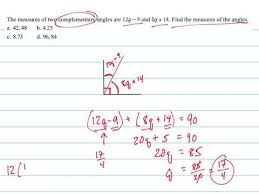 The measures of two complementary angles are 12q − 9 and 8q + 14. Find the measures of the angles.
a. 42, 48 b. 4.25
c. 8.75 d. 96, 84
12q−9
8q+14
(12q−9) + (8q+14) = 90
20q + 5 = 90
20q = 85
q = 85/20 = 17/4
17/4
12(